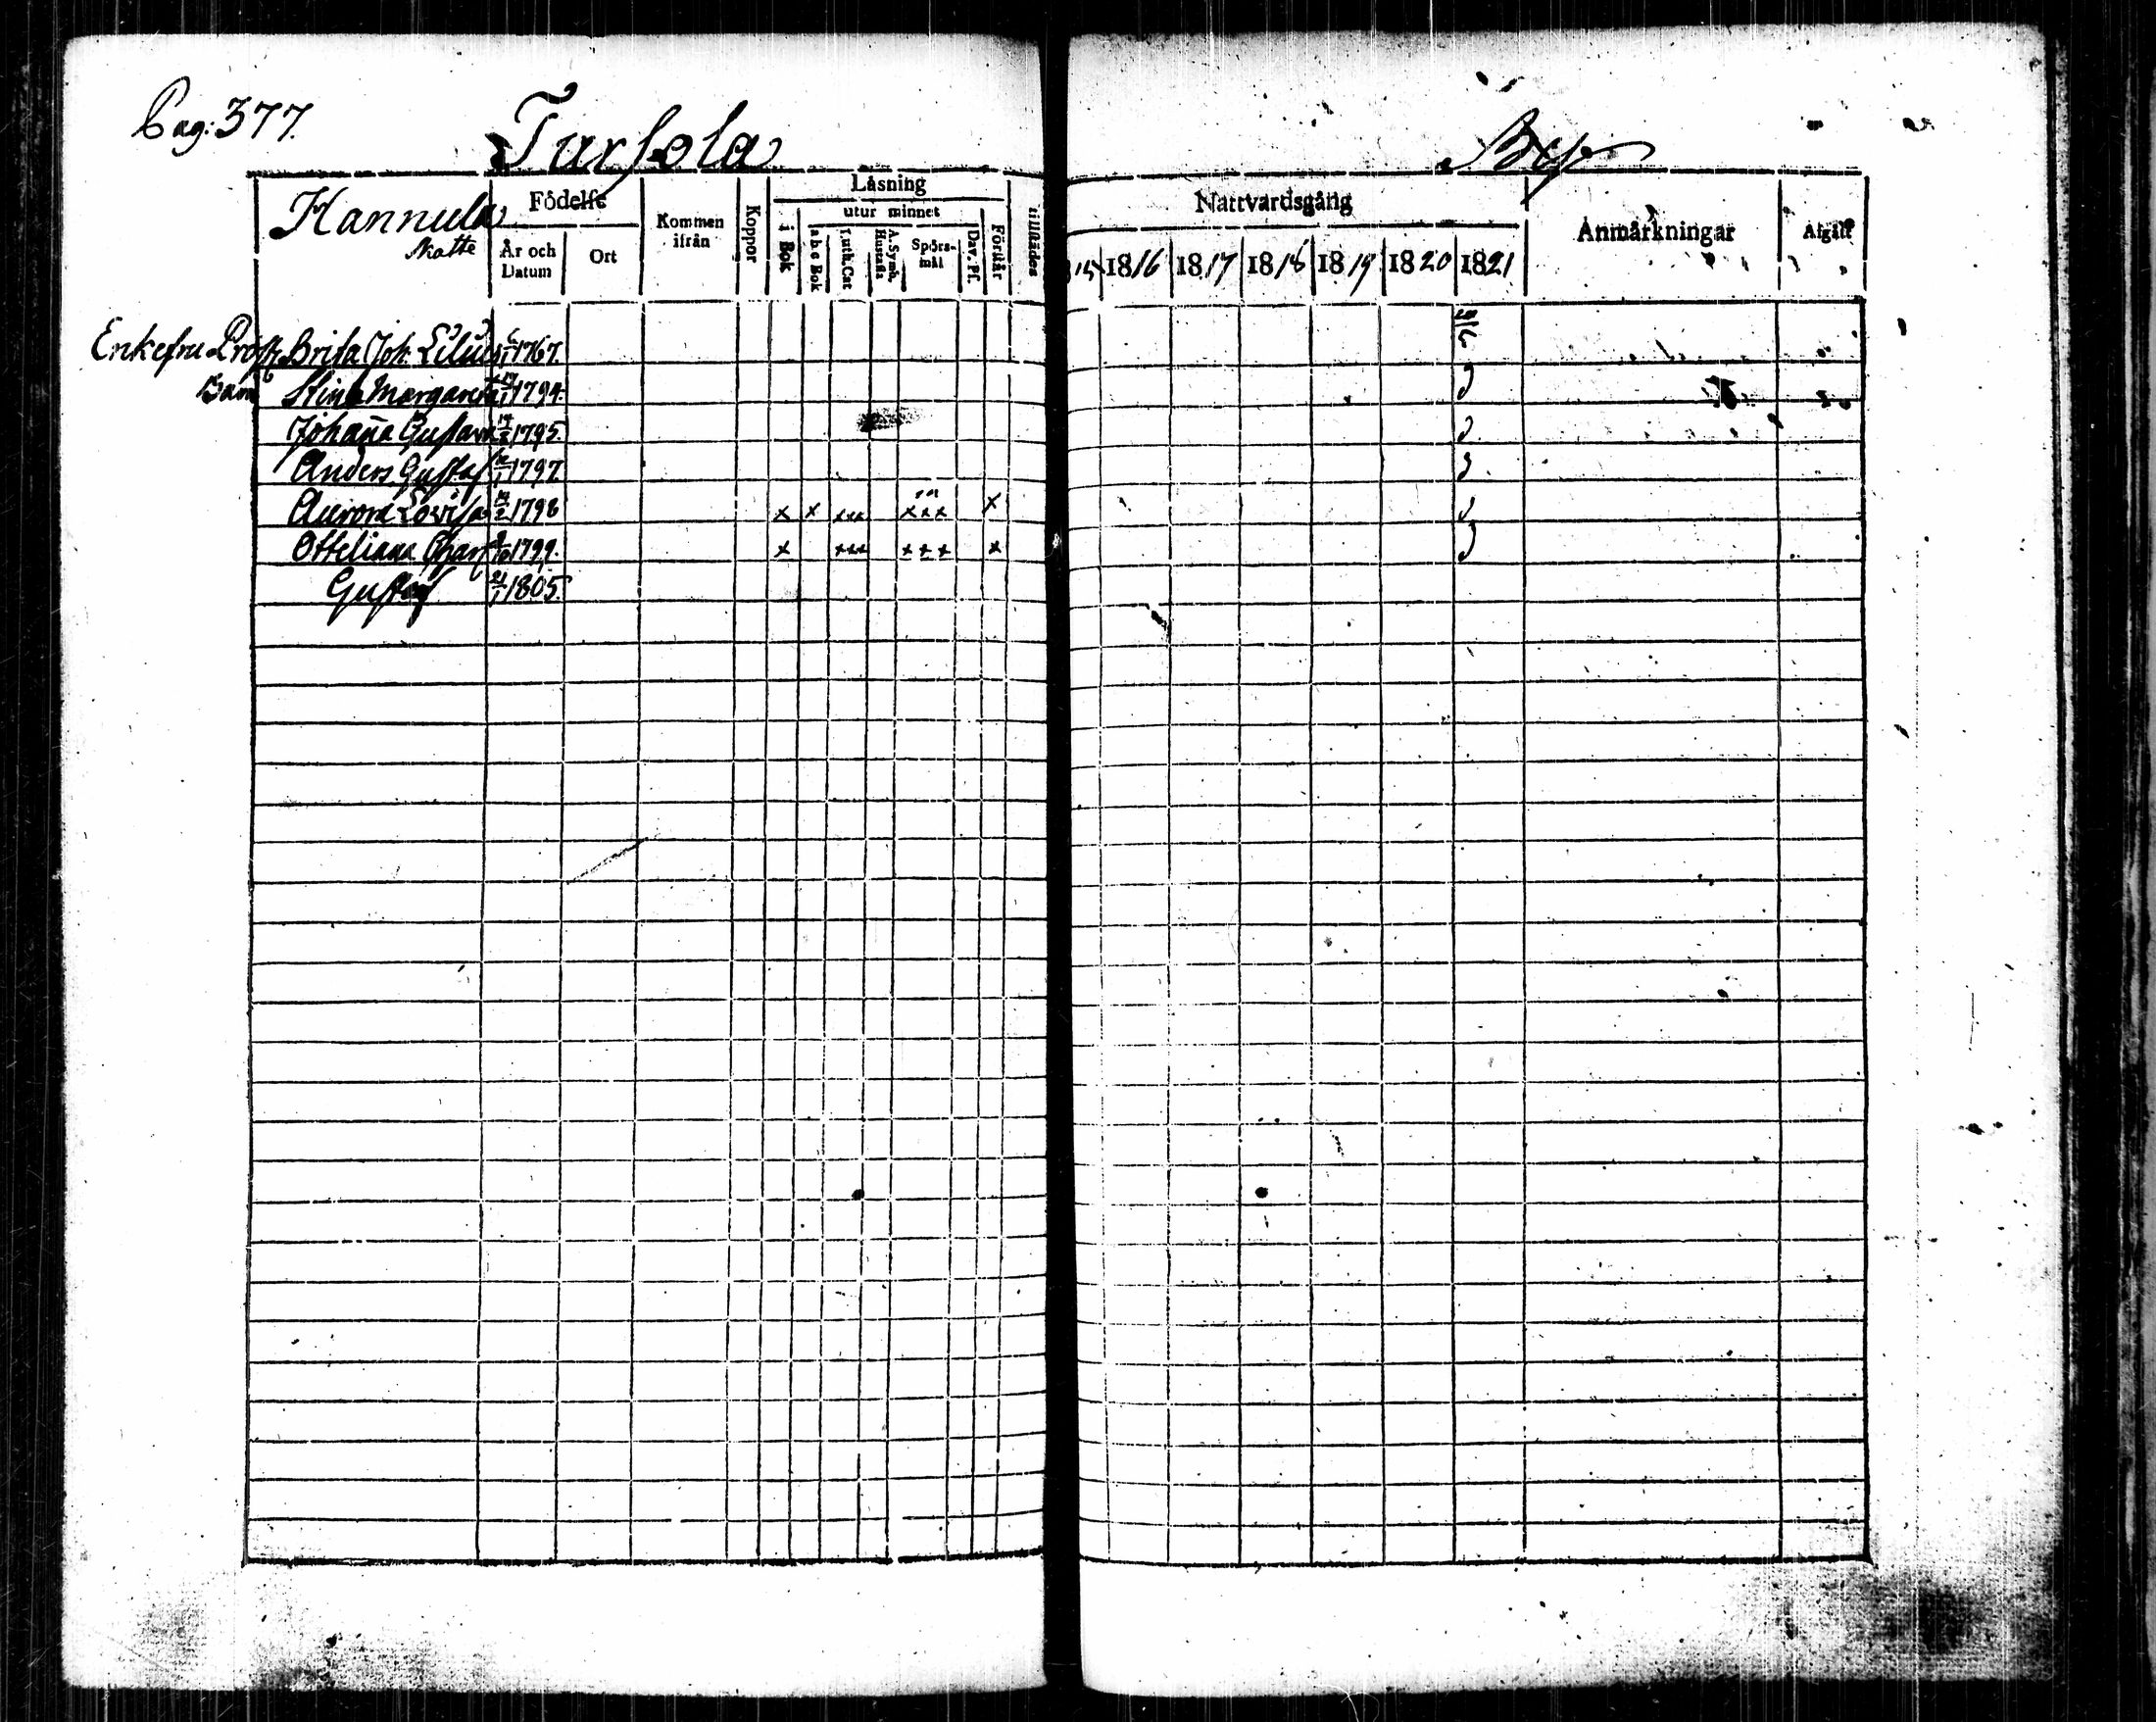 Pag: 377.
Tursola By
Hannula
Skatte
Födelse
År och Datum
Ort
Kommen ifrån
Koppor
Läsning
i Bok
utur minnet
a b c Bok
Luth. Cat
A. Symb. Hustafla
Spörsmål
Dav. Ps.
Förstår
tillstädes
Nattvardsgång
15 1816 1817 1818 1819 1820 1821
Anmärkningar
Afgått
Enkefru Prost. Brita Joh. Lilius 1767.
Barn Stina Margareta 1794.
Johaña Gustava 1795.
Anders Gustaf 1797.
Aurora Lovisa 1798 x x xxx xxx x
Otteliana Charl 1799. x xxx xxx x
Gustaf 21/1 1805.